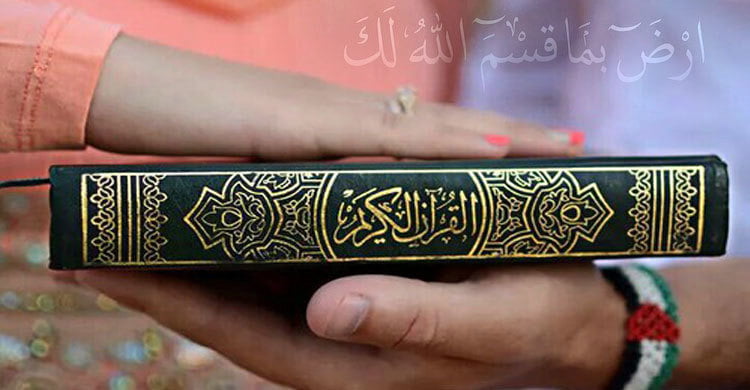 ارْضَ بِمَا قَسَمَ اللهُ لَكَ
القرآن الكريم